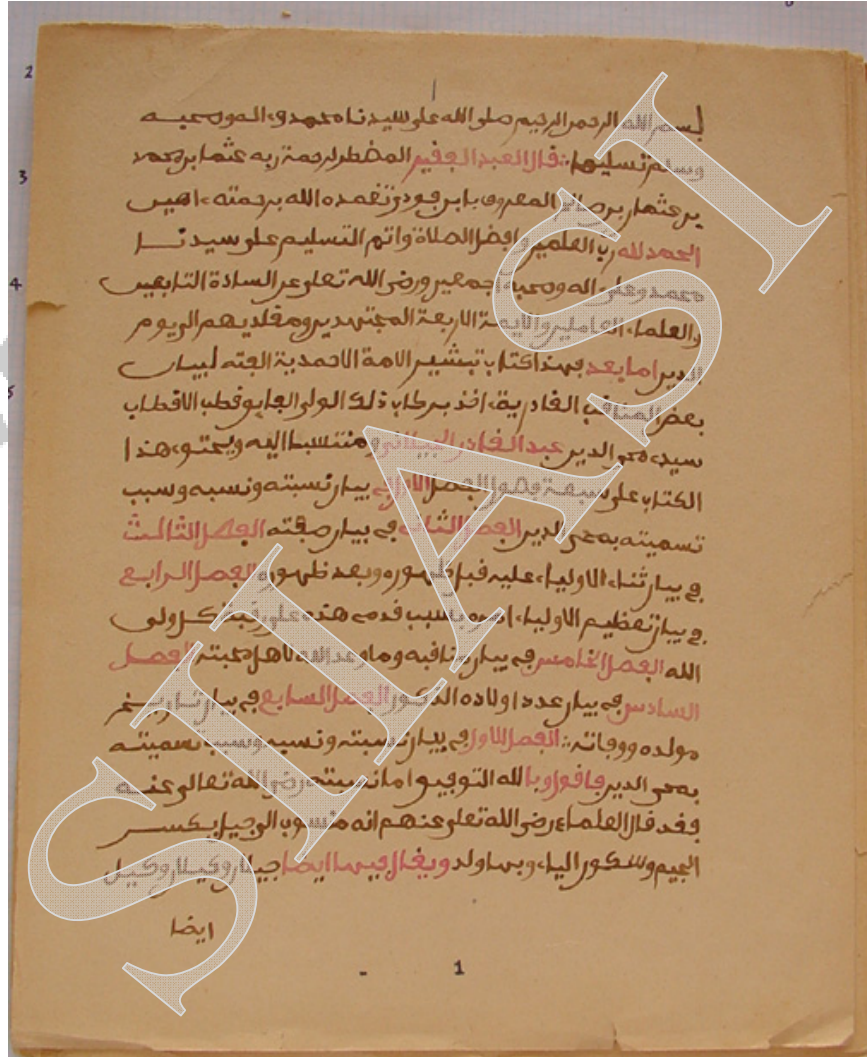 بسم الله الرحمن الرحيم صلى الله على سيدنا محمد وءاله وصحبه
وسلم تسليما قال العبد الفقير المضطر لرحمة ربه عثمان بن محمد
بن عثمان بن صالح المعروف بابن فودي تغمده الله برحمته ءامين
الحمد لله رب العلمين وافضل الصلاة واتم التسليم على سيدنا
محمد وعلى ءاله وصحبه اجمعين ورضى الله تعلى عن السادة التابعين
والعلماء العاملين والايمة الاربعة المجتهدين ومقلديهم الى يوم
الدين اما بعد فهذا كتاب تبشير الامة الاحمدية لبيان
بعض المناقب القادرية ذلك الولى قطب الاقطاب
سيدى محى الدين عبد القادر الجيلانى ومنتسبا اليه ويحتوى هذا
الكتاب على سبعة فصول الفصل الاول فى بيان نسبته ونسبه وسبب
تسميته بمحى الدين الفصل الثانى فى بيان صفته الفصل الثالث
فى بيان ثناء الاولياء عليه قبل ظهوره وبعد ظهوره الفصل الرابع
فى بيان تعظيم الاولياء بسبب قدمى هذه على رقبة كل ولى
الله الفصل الخامس فى بيان مناقبه وما وعد الله لاهل محبته الفصل
السادس فى بيان عدد اولاده الذكور الفصل السابع فى بيان تاريخ
مولده ووفاته الفصل الاول فى بيان نسبته ونسبه وسبب تسميته
بمحى الدين فاقول وبالله التوفيق اما نسبته رضى الله تعالى عنه
فقد قال العلماء رضى الله تعلى عنهم انه منسوب الى جيل بكسر
الجيم وسكون الياء وبها ولد ويقال فيها ايضا جيلان وكيلان وكيل
ايضا
1
2
3
4
5
SIIASI